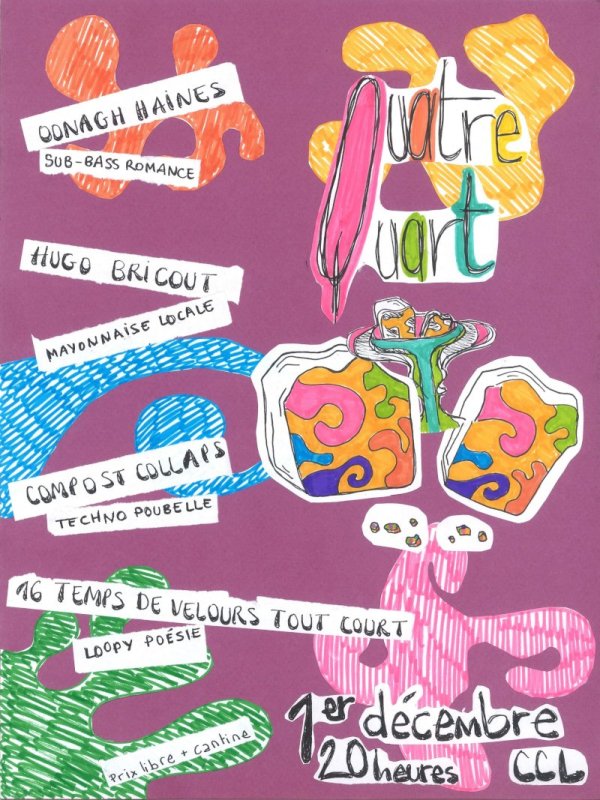 Quatre
Quart
OONAGH HAINES
SUB-BASS ROMANCE
HUGO BRICOUT
MAYONNAISE LOCALE
COMPOST COLLAPS
TECHNO POUBELLE
16 TEMPS DE VELOURS TOUT COURT
LOOPY POÉSIE
Prix libre + cantine
1er décembre
20heures CCL